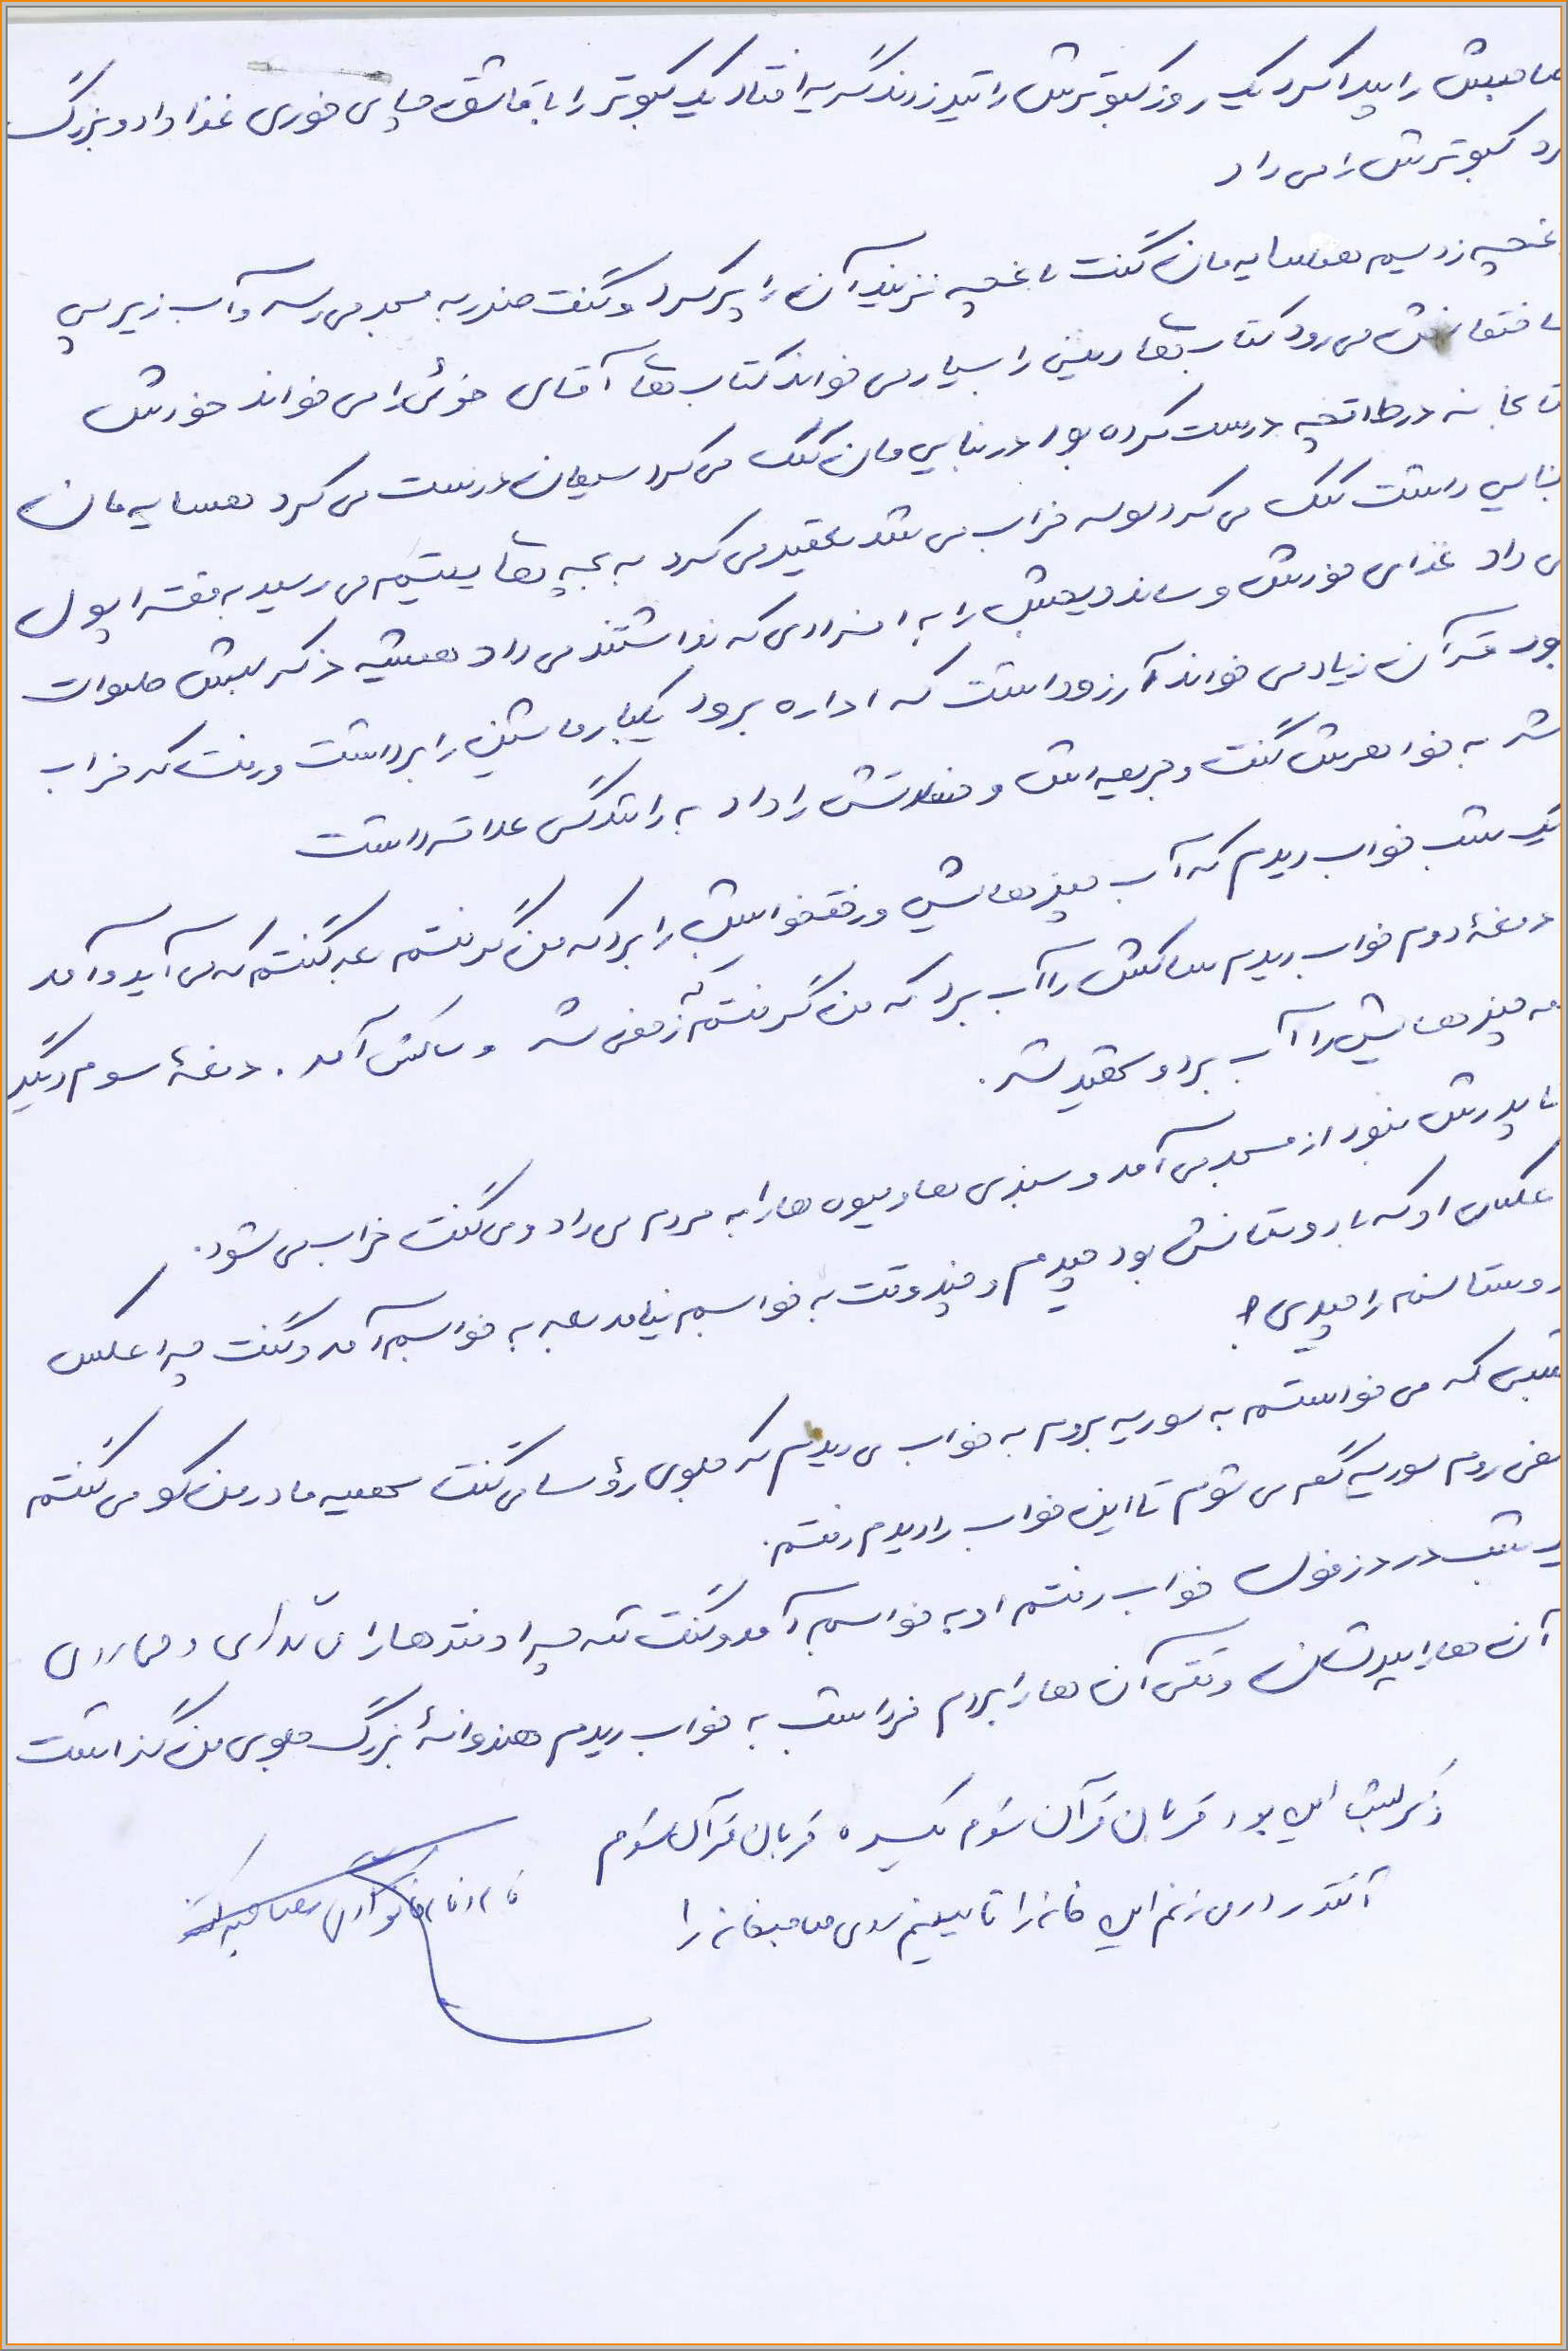 صاحبش را پیدا کرد یک روز کبوترش را تیر زدند گریه افتاد یک کبوتر را با قاشق چای خوری غذا داد و بزرگ
کرد کبوترش را می داد
باغچه زدیم همسایه مان گفت باغچه نزنید آن را پر کرد و گفت ضرر به مسجد می رسد و آب زیر پی
ساختمانش می رود کتاب های دینی را بسیار می خواند کتاب های آقای خوئی را می خواند خودش
کتابخانه در طاقچه درست کرده بود در بنایی مان کمک می کرد سیمان درست می کرد همسایه مان
بنایی داشت کمک می کرد لوله خراب می شد تعمیر می کرد به بچه های یتیم می رسید به فقرا پول
می داد غذای خودش و ساندویچش را به افرادی که نداشتند می داد همیشه ذکر لبش صلوات
بود قرآن زیاد می خواند آرزو داشت که اداره برود یکبار ماشین را برداشت و رفت که خراب
شد به خواهرش گفت و جریمه اش و خسارتش را داد به رانندگی علاقه داشت
یک شب خواب دیدم که آب چیزهایش و رختخوابش را برد که من گرفتم بعد گفتم که می آید و آمد
دفعهٔ دوم خواب دیدم ساکش را آب برد که من گرفتم که زخمی شد و ساکش آمد . دفعهٔ سوم دیگر
همه چیزهایش را آب برد و شهید شد .
با پدرش بنور از مسجد می آمد و سبزی ها و میوه ها را به مردم می داد و می گفت خراب می شود .
عکس او که با دوستانش بود چیدم و چند وقت به خوابم نیامد بعد به خوابم آمد و گفت چرا عکس
دوستانم را چیدی ؟
شبی که می خواستم به سوریه بروم به خواب می دیدم که جلوی رؤسا می گفت سمیه مادر من کو می گفتم
نمی روم سوریه گم می شوم تا این خواب را دیدم رفتم .
یک شب در دزفول خواب رفتم او به خوابم آمد و گفت ننه چرا قندها را نگه داری و نمی دهی
آن ها را ببرشان وقتی آن ها را بردم فردا شب به خواب دیدم هندوانهٔ بزرگ جلوی من گذاشت
ذکر لبش این بود قربان قرآن شوم یکسره قربان قرآن شوم
آنقدر در می زنم این خانه را تا ببینم روی صاحبخانه را